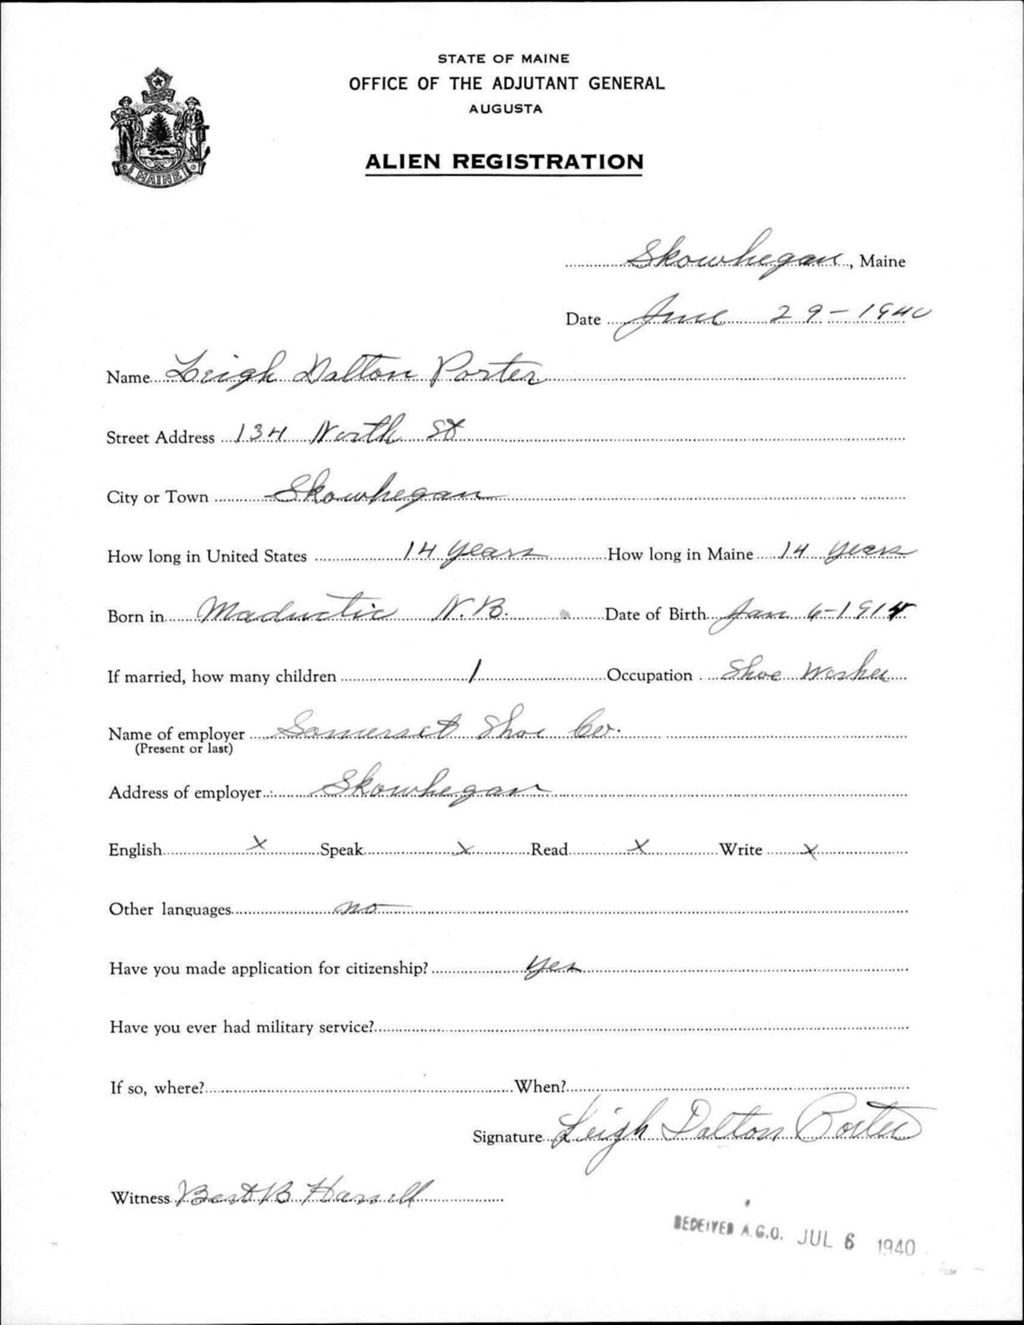 STATE OF MAINE
OFFICE OF THE ADJUTANT GENERAL
AUGUSTA
MAINE
ALIEN REGISTRATION
Skowhegan, Maine
Date June 29-1940
Name Leigh Dalton Porter
Street Address 134 North St
City or Town Skowhegan
How long in United States 14 years How long in Maine 14 years
Born in Maductic N.B. Date of Birth Jan 6-1914
If married, how many children 1 Occupation Shoe Worker
Name of employer Somerset Shoe Co.
(Present or last)
Address of employer Skowhegan
English x Speak x Read x Write x
Other languages no
Have you made application for citizenship? yes
Have you ever had military service?
If so, where? When?
Signature Leigh Dalton Porter
Witness B
RECEIVED A.G.O. JUL 6 1940